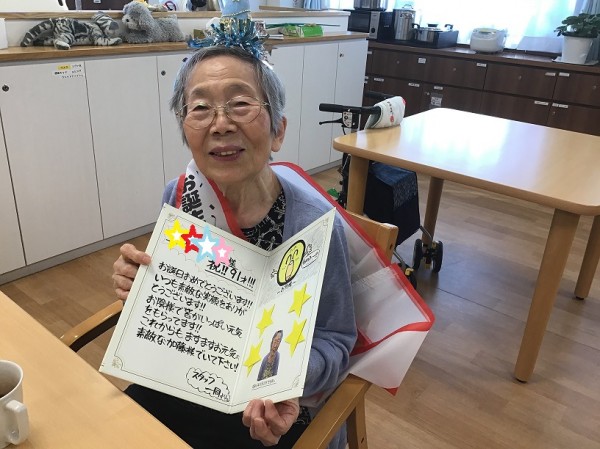 お誕生
様
祝!! 91才!!!
お誕生日おめでとうございます!!
いつも素敵な笑顔をありが
とうございます!!
お陰様で皆がいっぱい元気
をもらってます!!
これからも ますますお元気で
素敵な加藤様でいて下さい!
スタッフ
一同より